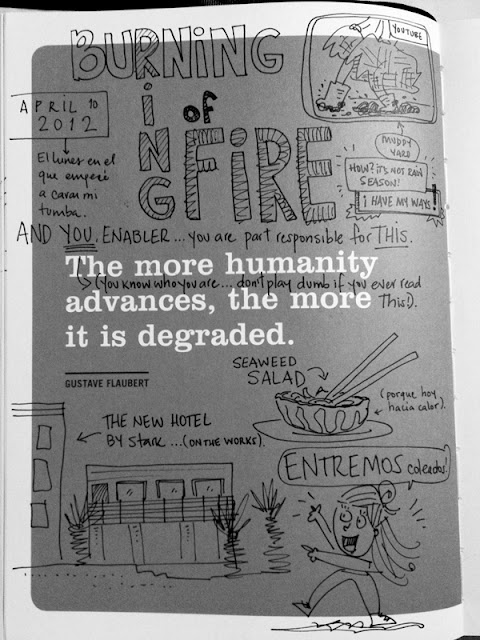 BURNING
RING
of
FIRE
YOUTUBE
APRIL 10
2012
El lunes en el
que empecé
a cavar mi
tumba.
MUDDY
YARD
HOW? IT'S NOT RAIN
SEASON!
I HAVE MY WAYS!
AND YOU, ENABLER... you are part responsible for THIS.
The more humanity
(You know who you are... don't play dumb if you ever read This!).
advances, the more
it is degraded.
GUSTAVE FLAUBERT
SEAWEED
SALAD
(porque hoy
hacía calor).
THE NEW HOTEL
BY Stark ... (ON THE WORKS).
ENTREMOS coleados!